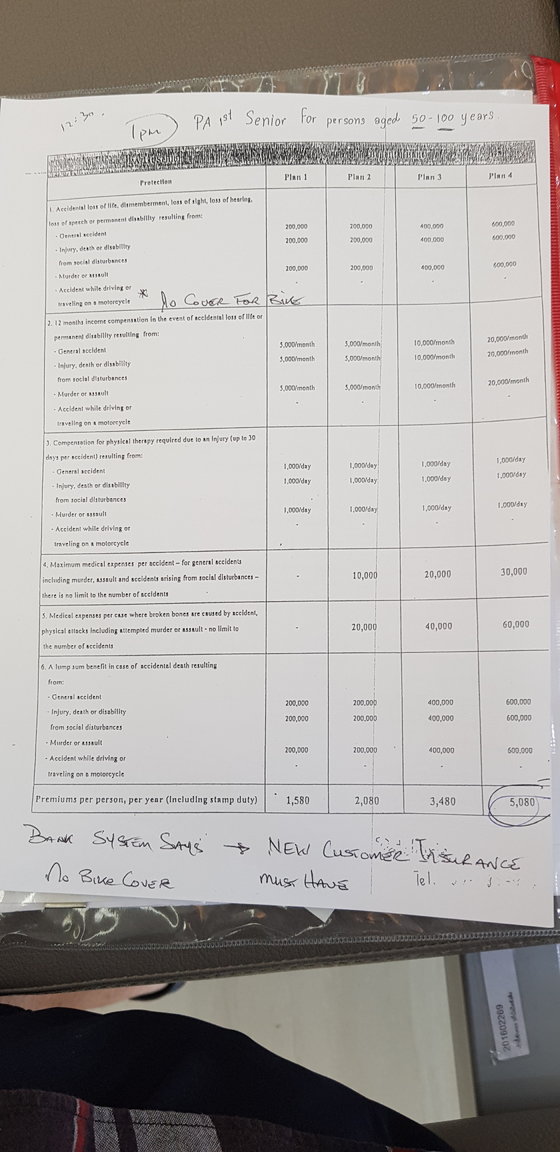 12:30.
1pm PA 1st Senior For persons aged 50-100 years.
Protection Plan 1 Plan 2 Plan 3 Plan 4
1. Accidental loss of life, dismemberment, loss of sight, loss of hearing,
loss of speech or permanent disability resulting from:
- General accident 200,000 200,000 400,000 600,000
- Injury, death or disability 200,000 200,000 400,000 600,000
from social disturbances
- Murder or assault 200,000 200,000 400,000 600,000
- Accident while driving or - - - -
traveling on a motorcycle * No COVER FOR BIKE
2. 12 months income compensation in the event of accidental loss of life or
permanent disability resulting from:
- General accident 5,000/month 5,000/month 10,000/month 20,000/month
- Injury, death or disability 5,000/month 5,000/month 10,000/month 20,000/month
from social disturbances
- Murder or assault 5,000/month 5,000/month 10,000/month 20,000/month
- Accident while driving or - - - -
traveling on a motorcycle
3. Compensation for physical therapy required due to an injury (up to 30
days per accident) resulting from:
- General accident 1,000/day 1,000/day 1,000/day 1,000/day
- Injury, death or disability 1,000/day 1,000/day 1,000/day 1,000/day
from social disturbances
- Murder or assault 1,000/day 1,000/day 1,000/day 1,000/day
- Accident while driving or - - - -
traveling on a motorcycle
4. Maximum medical expenses per accident – for general accidents
including murder, assault and accidents arising from social disturbances – - 10,000 20,000 30,000
there is no limit to the number of accidents
5. Medical expenses per case where broken bones are caused by accident,
physical attacks including attempted murder or assault - no limit to - 20,000 40,000 60,000
the number of accidents
6. A lump sum benefit in case of accidental death resulting
from:
- General accident 200,000 200,000 400,000 600,000
- Injury, death or disability 200,000 200,000 400,000 600,000
from social disturbances
- Murder or assault 200,000 200,000 400,000 600,000
- Accident while driving or - - - -
traveling on a motorcycle
Premiums per person, per year (including stamp duty) 1,580 2,080 3,480 5,080
BANK SYSTEM SAYS → NEW CUSTOMER INSURANCE
No BIKE COVER MUST HAVE Tel.
201602269